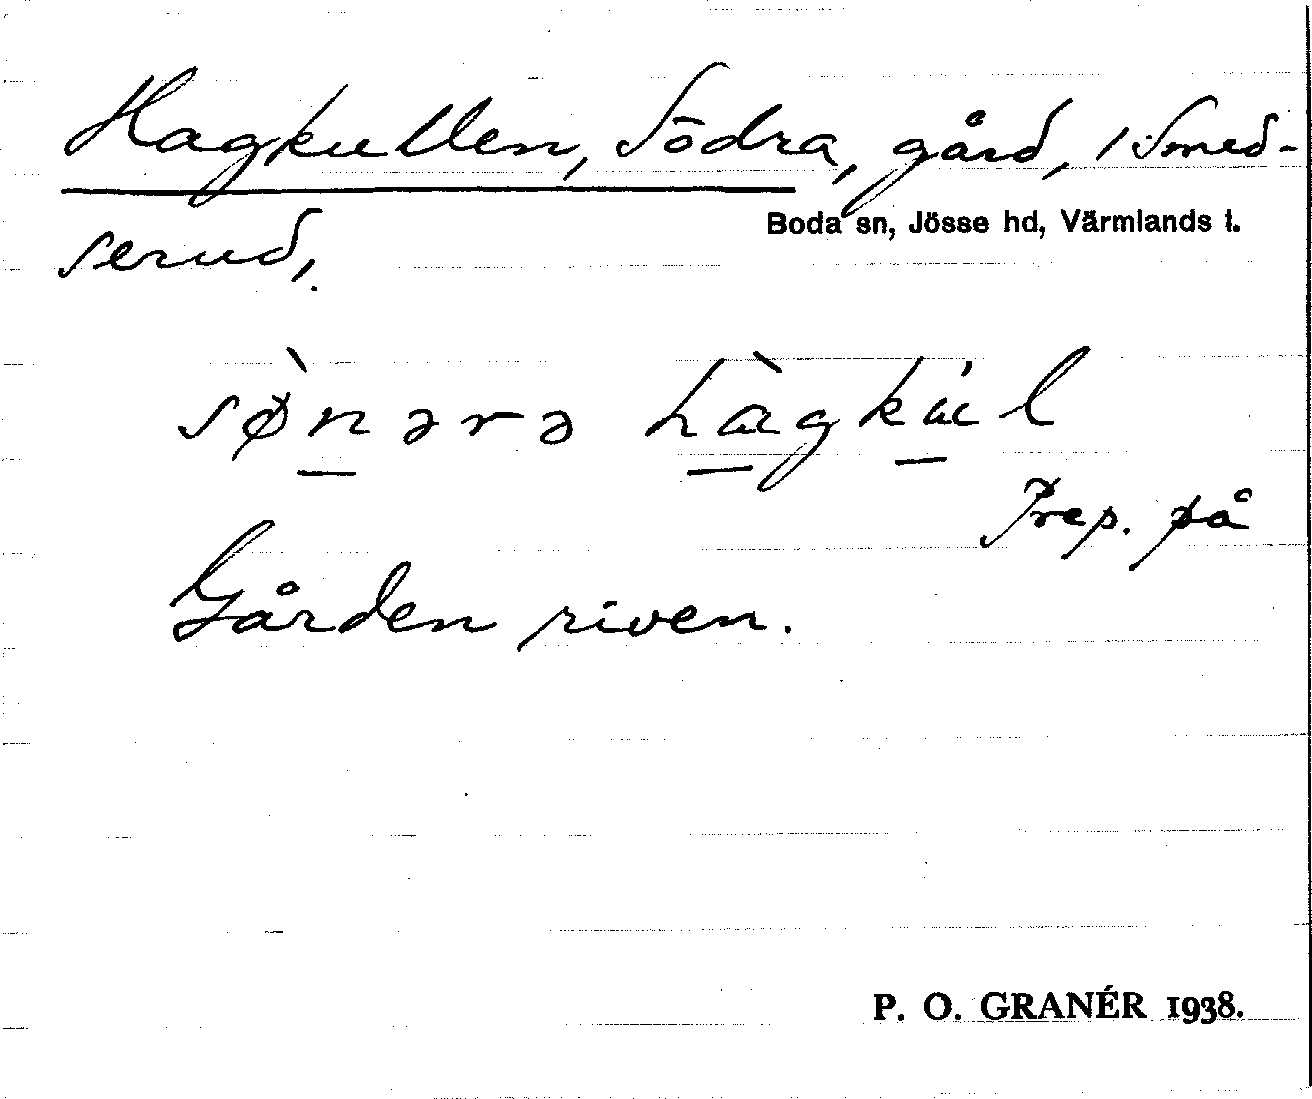 Hagkullen, Södra, gård, / Smed-
Boda sn, Jösse hd, Värmlands l.
serud,.
sø̀nərə hàgkúl
Prep. på
Gården riven.
P. O. GRANÉR 1938.